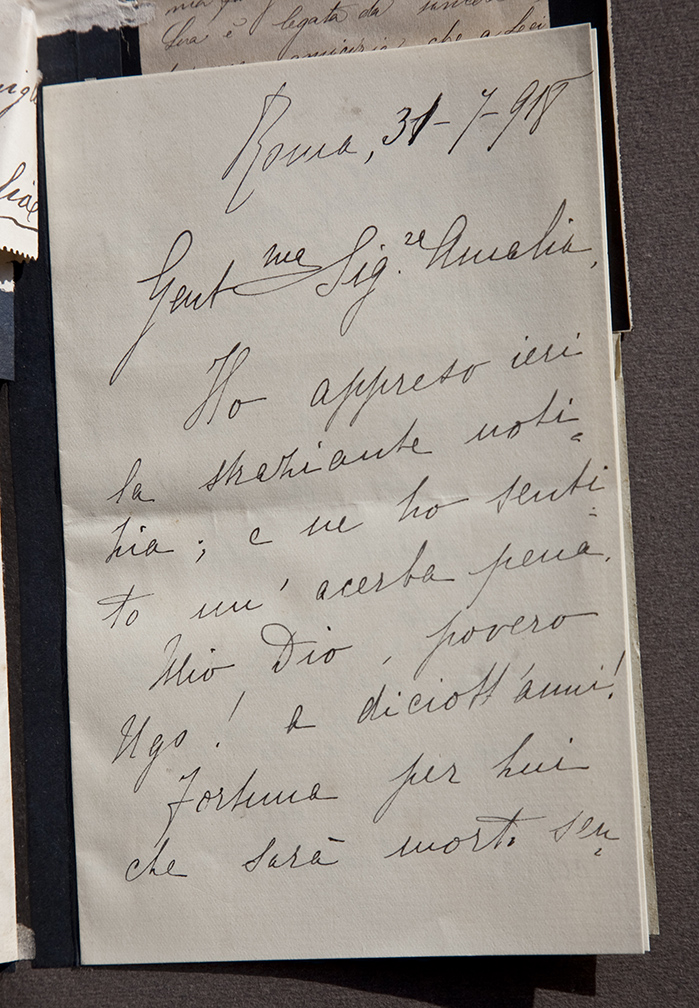 Lea è legata da
amicizia che a Lei
Roma, 31-7-918
Gent.ma Sig.ra Amalia,
Ho appreso ieri
la straziante noti=
zia; e ne ho senti=
to un' acerba pena.
Mio Dio, povero
Ugo! a diciott'anni!
Fortuna per lui
che sarà morto sen=